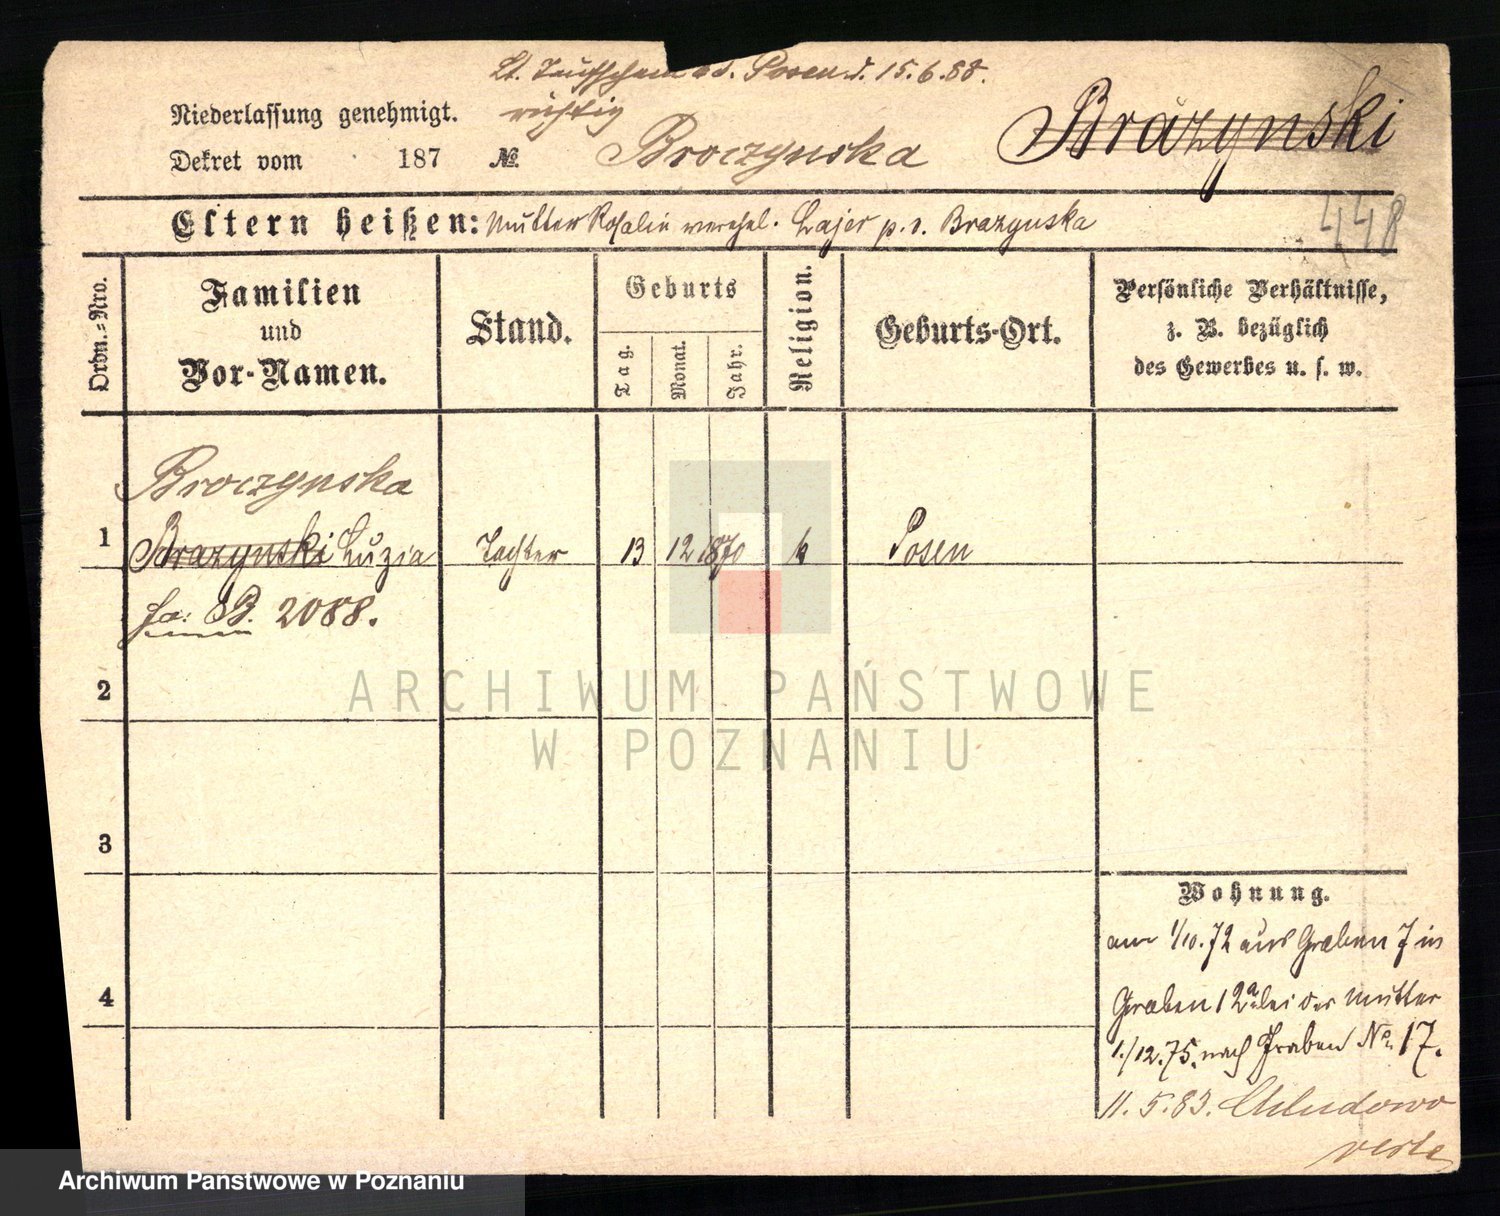 Lt. Taufschein v. d. Posen d. 15.6.88.
richtig
Niederlassung genehmigt.
Dekret vom 187 № Broczynska Brazynski
448
Eltern heißen: Mutter Rosalie verehel. Lajer p. v. Brazynska
Ordn.-Nro. Familien und Vor-Namen. Stand. Geburts Tag. Monat. Jahr. Religion. Geburts-Ort. Persönliche Verhältnisse, z. B. bezüglich des Gewerbes u. s. w.
Broczynska
1 Brazynski Luzia Tochter 13 12 1870 k Posen
fa: B. 2088.
2
ARCHIWUM PAŃSTWOWE
W POZNANIU
3
4
Wohnung.
am 1/10.72 aus Graben 7 in
Graben 12a bei der Mutter
1./12.75. nach Graben No 17.
11.5.83. Chludowo
verte
Archiwum Państwowe w Poznaniu